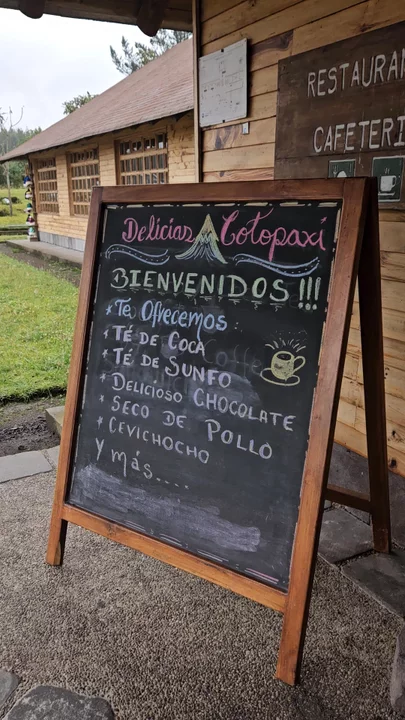 RESTAURAN
CAFETERI
Delicias Cotopaxi
BIENVENIDOS !!!
* Te Ofrecemos:
* TÉ DE COCA
* TÉ DE SUNFO
* DELICIOSO CHOCOLATE
* SECO DE POLLO
* CEVICHOCHO
Y más....